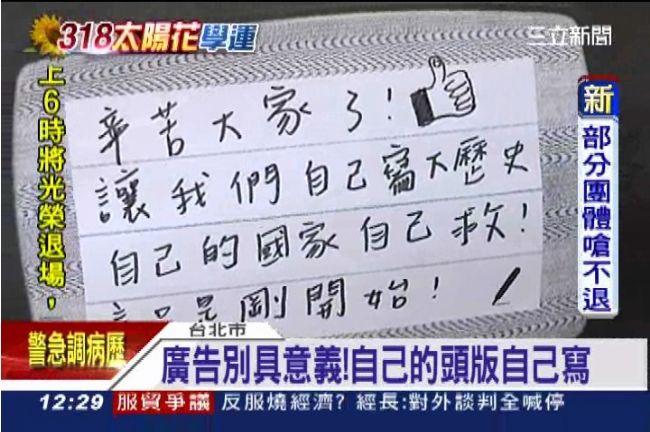 318太陽花學運
三立新聞
上6時將光榮退場，
辛苦大家了!
讓我們自己寫下歷史
自己的國家自己救!
這只是剛開始!
新
部分團體嗆不退
警急調病歷
台北市
廣告別具意義!自己的頭版自己寫
12:29 服貿爭議 反服燒經濟? 經長:對外談判全喊停